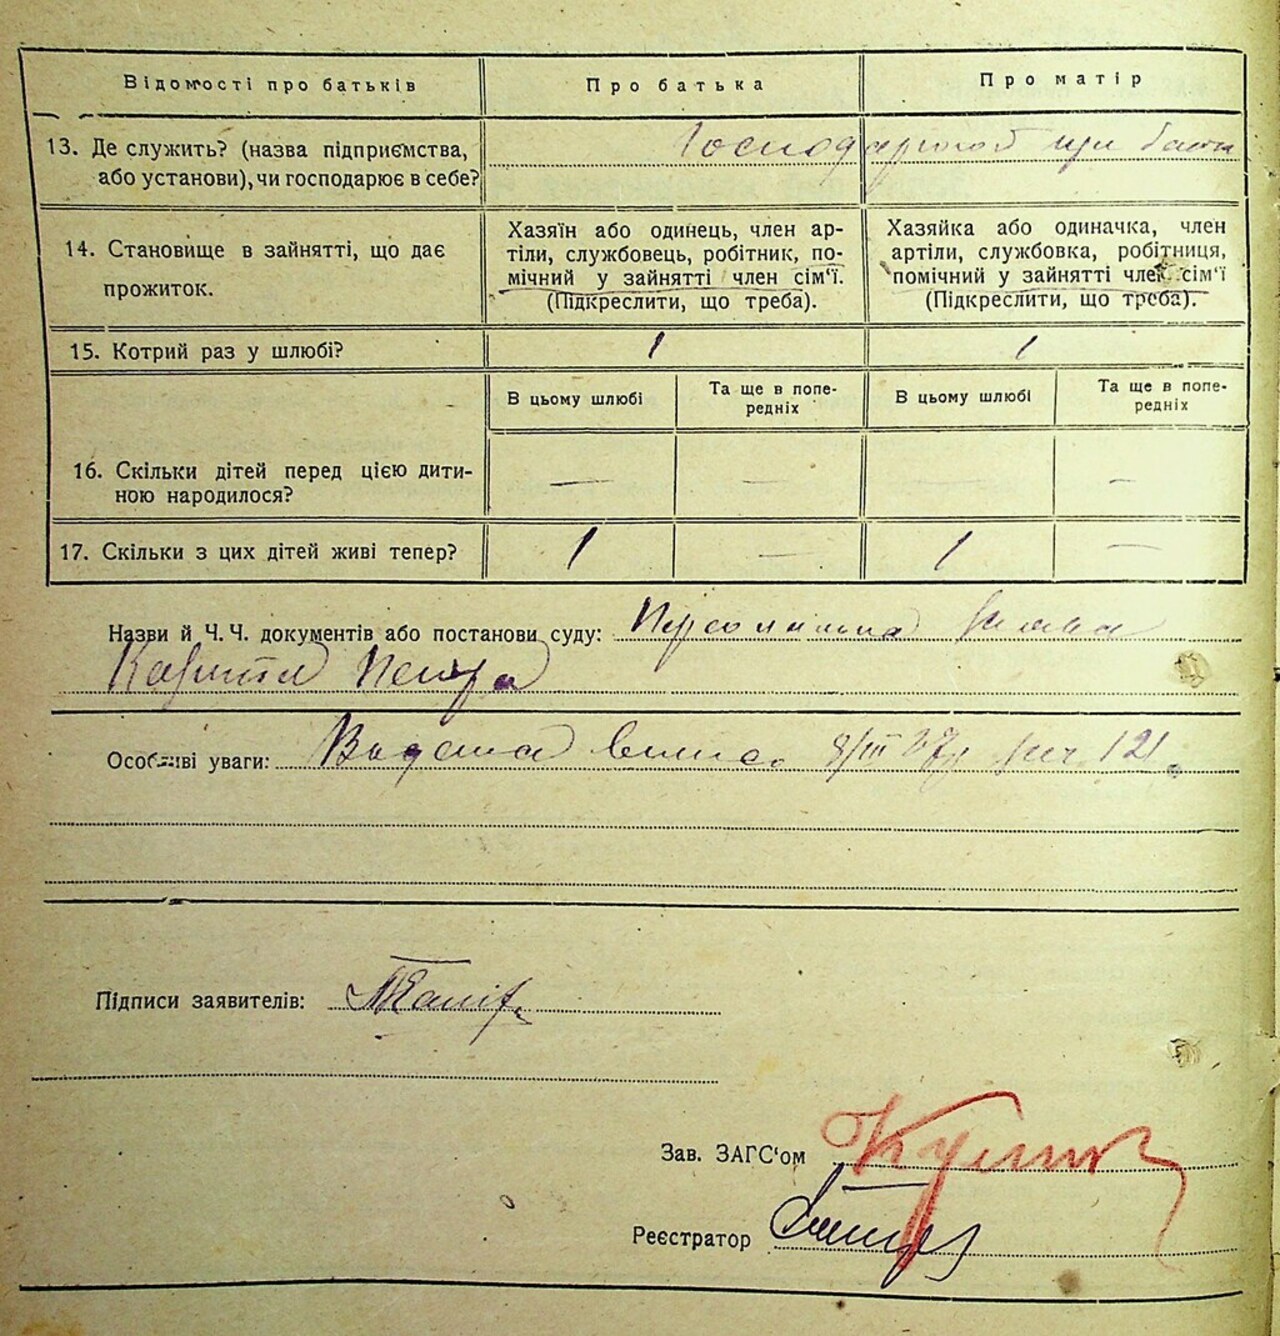 Відомості про батьків
Про батька
Про матір
13. Де служить? (назва підприємства,
або установи), чи господарює в себе?
Господарюють при
14. Становище в зайнятті, що дає
прожиток.
Хазяїн або одинець, член ар-
тіли, службовець, робітник, по-
мічний у зайнятті член сім‘ї.
(Підкреслити, що треба).
Хазяйка або одиначка, член
артіли, службовка, робітниця,
помічний у зайнятті член сім‘ї
(Підкреслити, що треба).
15. Котрий раз у шлюбі?
1
1
В цьому шлюбі
Та ще в попе-
редніх
В цьому шлюбі
Та ще в попе-
редніх
16. Скільки дітей перед цією дити-
ною народилося?
—
—
—
—
17. Скільки з цих дітей живі тепер?
1
—
1
—
Назви й Ч.Ч. документів або постанови суду: Персональна
Петра
Особливі уваги: 8/III 27 121.
Підписи заявителів:
Зав. ЗАГС‘ом
Реєстратор